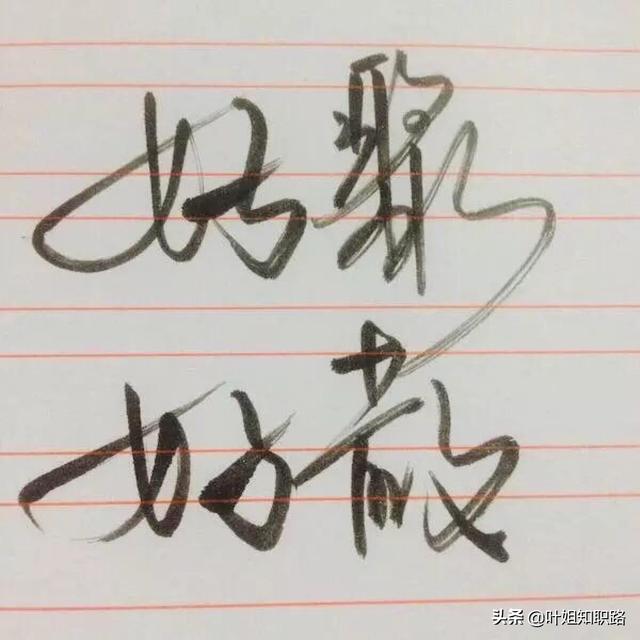 好聚
好散
头条 @叶姐知职路